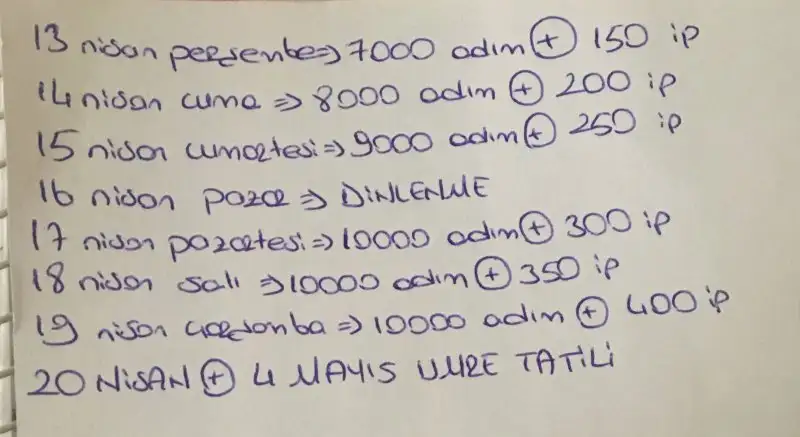 13 nisan perşembe => 7000 adım + 150 ip
14 nisan cuma => 8000 adım + 200 ip
15 nisan cumartesi => 9000 adım + 250 ip
16 nisan pazar => DİNLENME
17 nisan pazartesi => 10000 adım + 300 ip
18 nisan salı => 10000 adım + 350 ip
19 nisan çarşamba => 10000 adım + 400 ip
20 NİSAN + 4 MAYIS UMRE TATİLİ